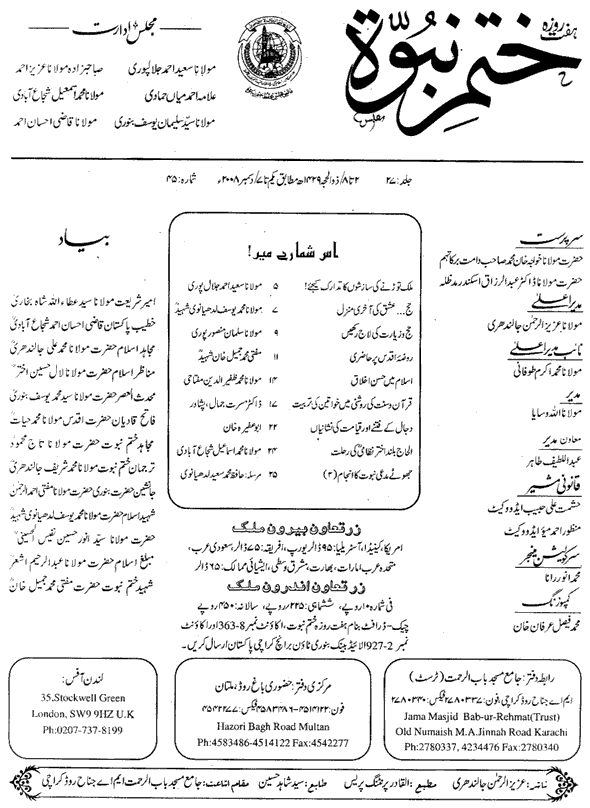 ہفت روزہ
ختم نبوۃ
مجلس ادارت
مولانا سعید احمد جلالپوری صاحبزادہ مولانا عزیز احمد
علامہ احمد میاں حمادی مولانا محمد اسمٰعیل شجاع آبادی
مولانا سید سلیمان یوسف بنوری مولانا قاضی احسان احمد
جلد: ۲۷ ۲ تا ۸/ذوالحجہ ۱۴۲۹ھ مطابق یکم تا ۷/دسمبر ۲۰۰۸ء شمارہ: ۴۵
سرپرست
حضرت مولانا خواجہ خان محمد صاحب دامت برکاتہم
حضرت مولانا ڈاکٹر عبدالرزاق اسکندر مدظلہ
مدیر اعلیٰ
مولانا عزیز الرحمٰن جالندھری
نائب مدیر اعلیٰ
مولانا محمد اکرم طوفانی
مدیر
مولانا اللہ وسایا
معاون مدیر
عبداللطیف طاہر
قانونی مشیر
حشمت علی حبیب ایڈووکیٹ
منظور احمد میؤ ایڈووکیٹ
سرکولیشن منیجر
محمد انور رانا
کمپوزنگ
محمد فیصل عرفان خان
اس شمارے میں!
ملک توڑنے کی سازشوں کا تدارک کیجئے! ۵ مولانا سعید احمد جلال پوری
حج... عشق کی آخری منزل ۷ مولانا محمد یوسف لدھیانوی شہیدؒ
حج و زیارت کی لاج رکھیں ۹ مولانا سلمان منصور پوری
روضۂ اقدس پر حاضری ۱۱ مفتی محمد جمیل خان شہیدؒ
اسلام میں حسن اخلاق ۱۴ مولانا محمد ظفیر الدین مفتاحی
قرآن و سنت کی روشنی میں خواتین کی تربیت ۱۷ ڈاکٹر مسرت جمال، پشاور
دجال کے فتنے اور قیامت کی نشانیاں ۲۲ ابو عفیرہ خان
الحاج بلند اختر نظامیؒ کی رحلت ۲۴ مولانا محمد اسماعیل شجاع آبادی
جھوٹے مدعی نبوت کا انجام (۲) ۲۵ مرسلہ: حافظ محمد سعید لدھیانوی
بیاد
امیر شریعت مولانا سید عطاء اللہ شاہ بخاریؒ
خطیب پاکستان قاضی احسان احمد شجاع آبادیؒ
مجاہد اسلام حضرت مولانا محمد علی جالندھریؒ
مناظر اسلام حضرت مولانا لال حسین اخترؒ
محدث العصر حضرت مولانا سید محمد یوسف بنوریؒ
فاتح قادیان حضرت اقدس مولانا محمد حیاتؒ
مجاہد ختم نبوت حضرت مولانا تاج محمودؒ
ترجمان ختم نبوت مولانا محمد شریف جالندھریؒ
جانشین حضرت بنوری حضرت مولانا مفتی احمد الرحمٰنؒ
شہید اسلام حضرت مولانا محمد یوسف لدھیانوی شہیدؒ
حضرت مولانا سید انور حسین نفیس الحسینیؒ
مبلغ اسلام حضرت مولانا عبدالرحیم اشعرؒ
شہید ختم نبوت حضرت مفتی محمد جمیل خانؒ
زرتعاون بیرون ملک
امریکا، کینیڈا، آسٹریلیا: ۹۵ ڈالر یورپ، افریقہ: ۷۵ ڈالر، سعودی عرب،
متحدہ عرب امارات، بھارت، مشرق وسطی، ایشیائی ممالک: ۶۵ ڈالر
زرتعاون اندرون ملک
فی شمارہ ۱۰ روپے، ششماہی: ۲۲۵ روپے، سالانہ: ۴۵۰ روپے
چیک-ڈرافٹ بنام ہفت روزہ ختم نبوت، اکاؤنٹ نمبر 8-363 اور اکاؤنٹ
نمبر 2-927 الائیڈ بینک بنوری ٹاؤن برانچ کراچی پاکستان ارسال کریں۔
رابطہ دفتر: جامع مسجد باب الرحمت (ٹرسٹ)
ایم اے جناح روڈ کراچی، فون: ۲۷۸۰۳۳۷ فیکس: ۲۷۸۰۳۴۰
Jama Masjid Bab-ur-Rehmat(Trust)
Old Numaish M.A.Jinnah Road Karachi
Ph:2780337, 4234476 Fax:2780340
مرکزی دفتر: حضوری باغ روڈ، ملتان
فون: ۴۵۱۴۱۲۲-۴۵۸۳۴۸۶ فیکس: ۴۵۴۲۲۷۷
Hazori Bagh Road Multan
Ph:4583486-4514122 Fax:4542277
لندن آفس:
35,Stockwell Green
London, SW9 9HZ U.K
Ph:0207-737-8199
ناشر: عزیز الرحمٰن جالندھری مطبع: القادر پرنٹنگ پریس طابع: سید شاہد حسین مقام اشاعت: جامع مسجد باب الرحمت ایم اے جناح روڈ کراچی